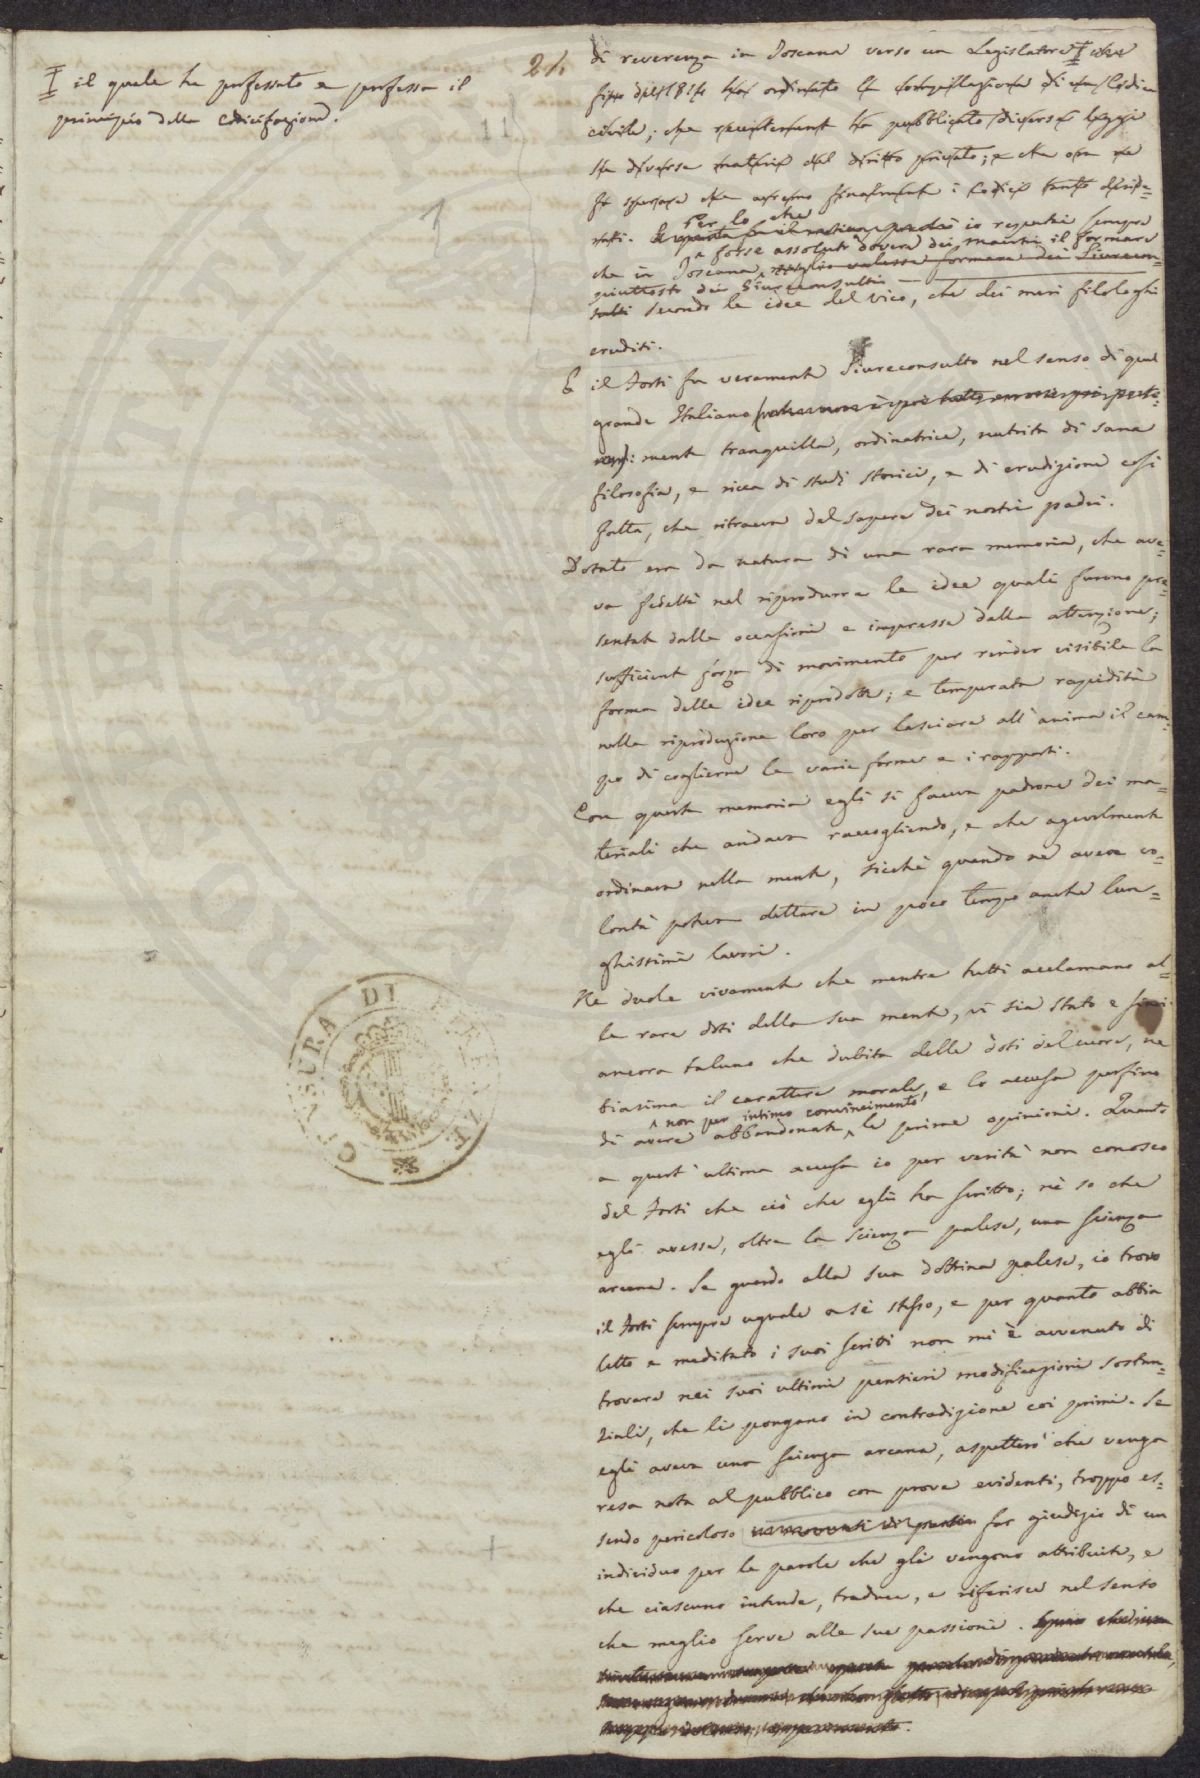 I il quale ha professato e professa il
principio della codificazione.
21.
di reverenza in Toscana verso un Legislatore I che
fino dal 1814 ha ordinato la compilazione di un Codice
civile; che recentemente ha pubblicato diverse leggi
su diverse materie del diritto privato; e che ora ne
fa sperare che avremo finalmente i Codici tanto deside=
rati. Per lo che io reputai sempre
che in Toscana e forse assoluto dovere dei maestri il formare
meglio valesse formare dei Giurecon=
piuttosto dei Giureconsulti
sulti secondo le idee del Vico, che dei meri filologhi
eruditi.
E il Forti fu veramente Giureconsulto nel senso di quel
grande Italiano
mente tranquilla, ordinatrice, nutrita di sana
filosofia, e ricca di studi storici, e di erudizione così
fatta, che ritraeva del sapere dei nostri padri.
Dotato era da natura di una rara memoria, che ave=
va fedeltà nel riprodurre le idee quali furono pre=
sentate dalle occasioni e impresse dalla attenzione;
sufficiente forza di movimento per rènder visibile la
forma delle idee riprodotte; e temperata rapidità
nella riproduzione loro per lasciare all'anima il cam=
po di coglierne le varie forme e i rapporti.
Con questa memoria egli si faceva padrone dei ma=
teriali che andava raccogliendo, e che agevolmente
ordinava nella mente, sicchè quando ne aveva vo=
lontà poteva dettare in poco tempo anche lun=
ghissimi lavori.
Ne duole vivamente che mentre tutti acclamano al=
le rare doti della sua mente, vi sia stato e sia
ancora taluno che dubita delle doti del cuore, ne
biasima il carattere morale, e lo accusa perfino
non per intimo convincimento
di avere abbandonate le prime opinioni. Quanto
a quest'ultima accusa io per verità non conosco
del Forti che ciò che egli ha scritto; nè so che
egli avesse, oltre la scienza palese, una scienza
arcana. Se guardo alla sua dottrina palese, io trovo
il Forti sempre uguale a sè stesso, e per quanto abbia
letto e meditato i suoi scritti non mi è avvenuto di
trovare nei suoi ultimi pensieri modificazioni sostan=
ziali, che li pongano in contradizione coi primi. Se
egli aveva una scienza arcana, aspetterò che venga
resa nota al pubblico con prove evidenti, troppo es=
sendo pericoloso far giudizio di un
individuo per le parole che gli vengono attribuite, e
che ciascuno intende, traduce, e riferisce nel senso
che meglio serve alle sue passioni.
CENSURA DI FIRENZE